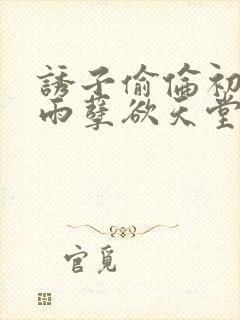 誘子偷倫初
雨孽欲天堂
官覓